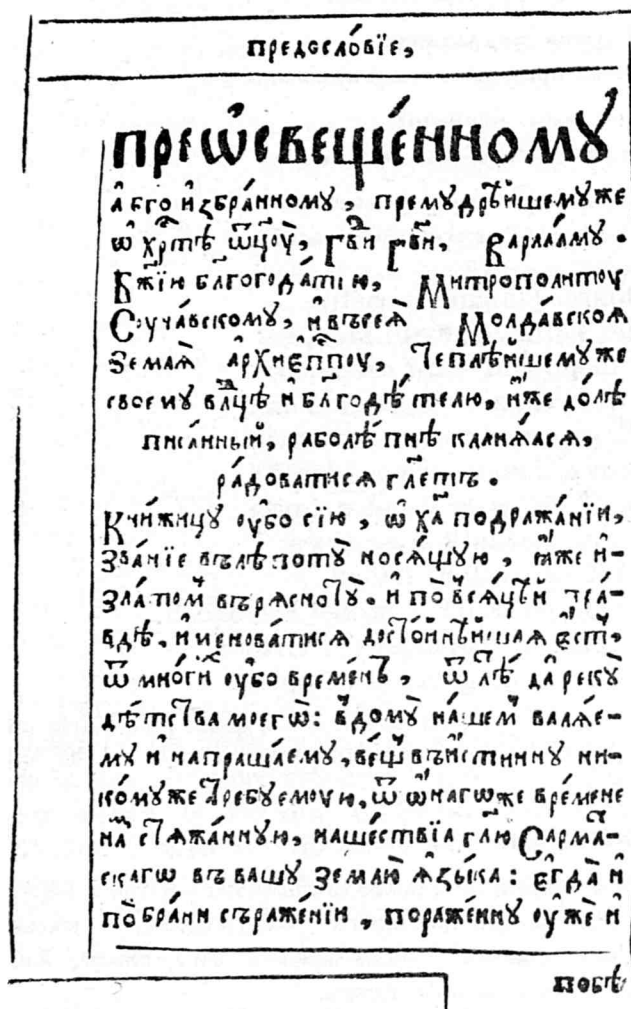 предсло́вїе,
прещ҃свеще́нному
а҆ бг҃о и҆збра́нному, премꙋдрѣ́йшемꙋже
ѿ хр҃тѣ ѿц҃оу̀, гв҃и гв҃и, Варлаа́мꙋ.
Бж҃їю бл҃гогода́тїю, Митрополитоу
Соуча́вскомꙋ, и҆ въсеѧ̀ Молда́вскоѧ
землѧ̀ а҆рхїеп҃поу, теплѣ́йшемꙋже
своемꙋ влⷣцѣ и҆ бл҃годѣ́телю, и҆́же до́лѣ
писа́нный, раболѣ́пнѣ кланѧ́ѧсѧ,
ра́доватисѧ гл҃етъ.
Кни́жицꙋ оу҆́бо сїю, ѿ ха҃ подража́нїи,
зва́нїе вълѣ́потꙋ̀ носѧ́щꙋю, ꙗ҆́же и҆-
зла́том въ рѧсно́тꙋ̀. и҆ по̀ всѧ́цѣй пра́-
вдѣ. и҆меновáтисѧ досто́йнѣйшаѧ є҆́стъ,
ѿ мно́гихъ оу҆́бо време́нъ, ѿ лѣ́тъ да̀ рекꙋ̀
дѣ́тства моегѡ̀: в̾ домꙋ̀ на́шем валѧ́е-
мꙋ и҆ напраща́емꙋ, ве́щъ въи҆́стиннꙋ ни-
ко́мꙋже требꙋемоую, ѿ ѡ҆́нагѡже вре́мене
на́мъ стѧжа́ннꙋю, наше́ствїа гл҃ю Сарма́-
скагѡ въ вашꙋ землю̀ ѧ҆зы́ка: є҆гда̀ и҆
по̀ бра́ни съраже́нїи, пораже́ннꙋ оу҆́же и҆
побѣ